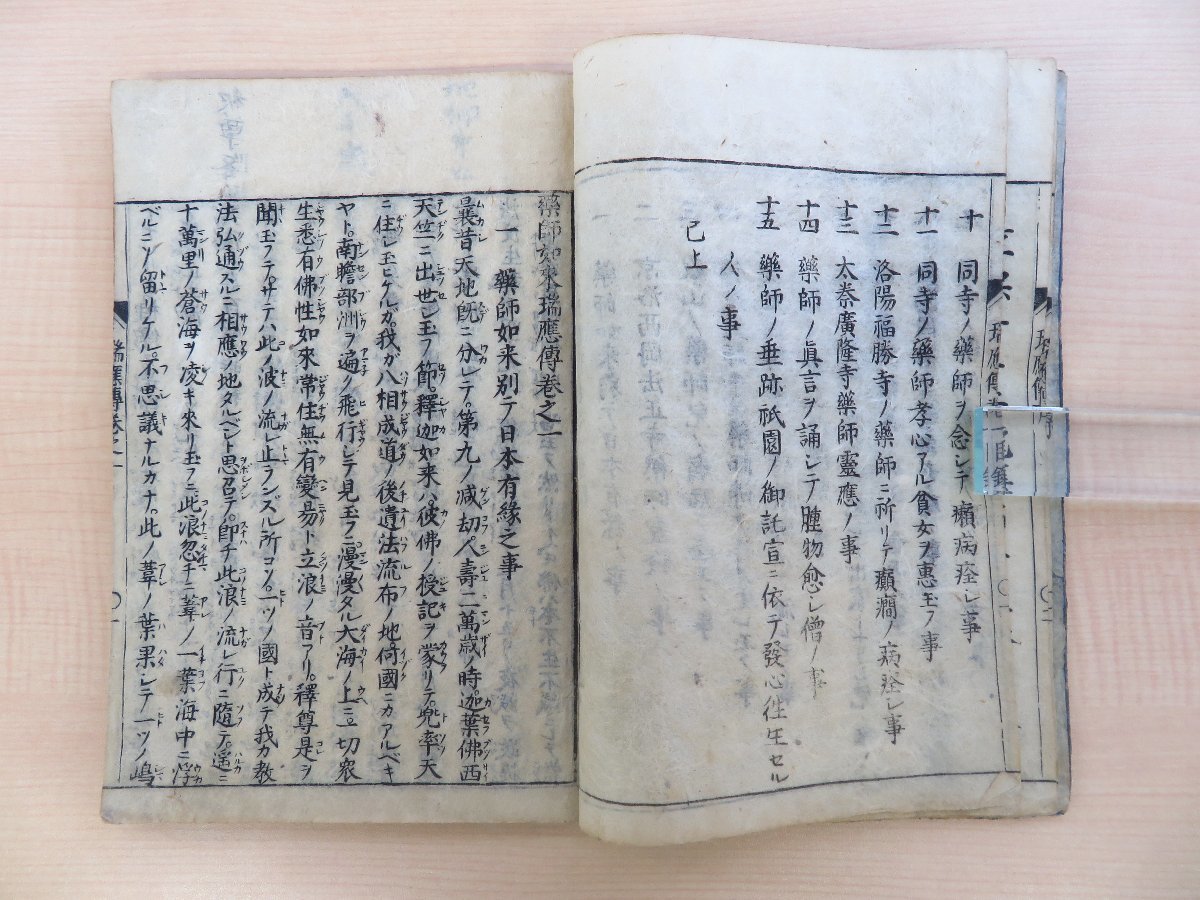 十　同寺ノ薬師ヲ念シテ癩病痊シ事
十一　同寺ノ藥師孝心アル貧女ヲ惠玉フ事
十二　洛陽福勝寺ノ藥師ニ祈リテ癲癇ノ病痊シ事
十三　太秦廣隆寺藥師靈應ノ事
十四　藥師ノ眞言ヲ誦シテ腫物愈シ僧ノ事
十五　藥師ノ垂跡祇園ノ御託宣ニ依テ發心徃生セル
人ノ事
已上
藥師如來瑞應傳卷之一
一　藥師如来別テ日本有緣之事
曩昔天地既ニ分レテ。第九ノ减劫人壽二萬歳ノ時。迦葉佛西
天竺ニ出世シ玉フ節。釋迦如来ハ彼佛ノ授記ヲ蒙リテ。兜率天
ニ住シ玉ヒケルガ。我ガ八相成道ノ後。遺法流布ノ地。何國ニカアルベキ
ヤト。南瞻部洲ヲ遍ク飛行シテ見玉フニ。漫漫タル大海ノ上ニ一切衆
生悉有佛性如來常住無有變昜ト立浪ノ音アリ。釋尊是ヲ
聞玉フテ。サテハ此ノ波ノ流レ止ランズル所コソ。一ツノ國ト成テ。我カ教
法弘通スルニ相應ノ地タルベシト思召テ。卽チ此浪ノ流レ行ニ隨テ。遥ニ
十萬里ノ蒼海ヲ凌キ來リ玉フニ。此浪忽チニ葦ノ一葉海中ニ浮
ベルニゾ留リケル。不思議ナルカナ。此ノ葦ノ葉果シテ一ツノ嶋
瑞應傳卷之一